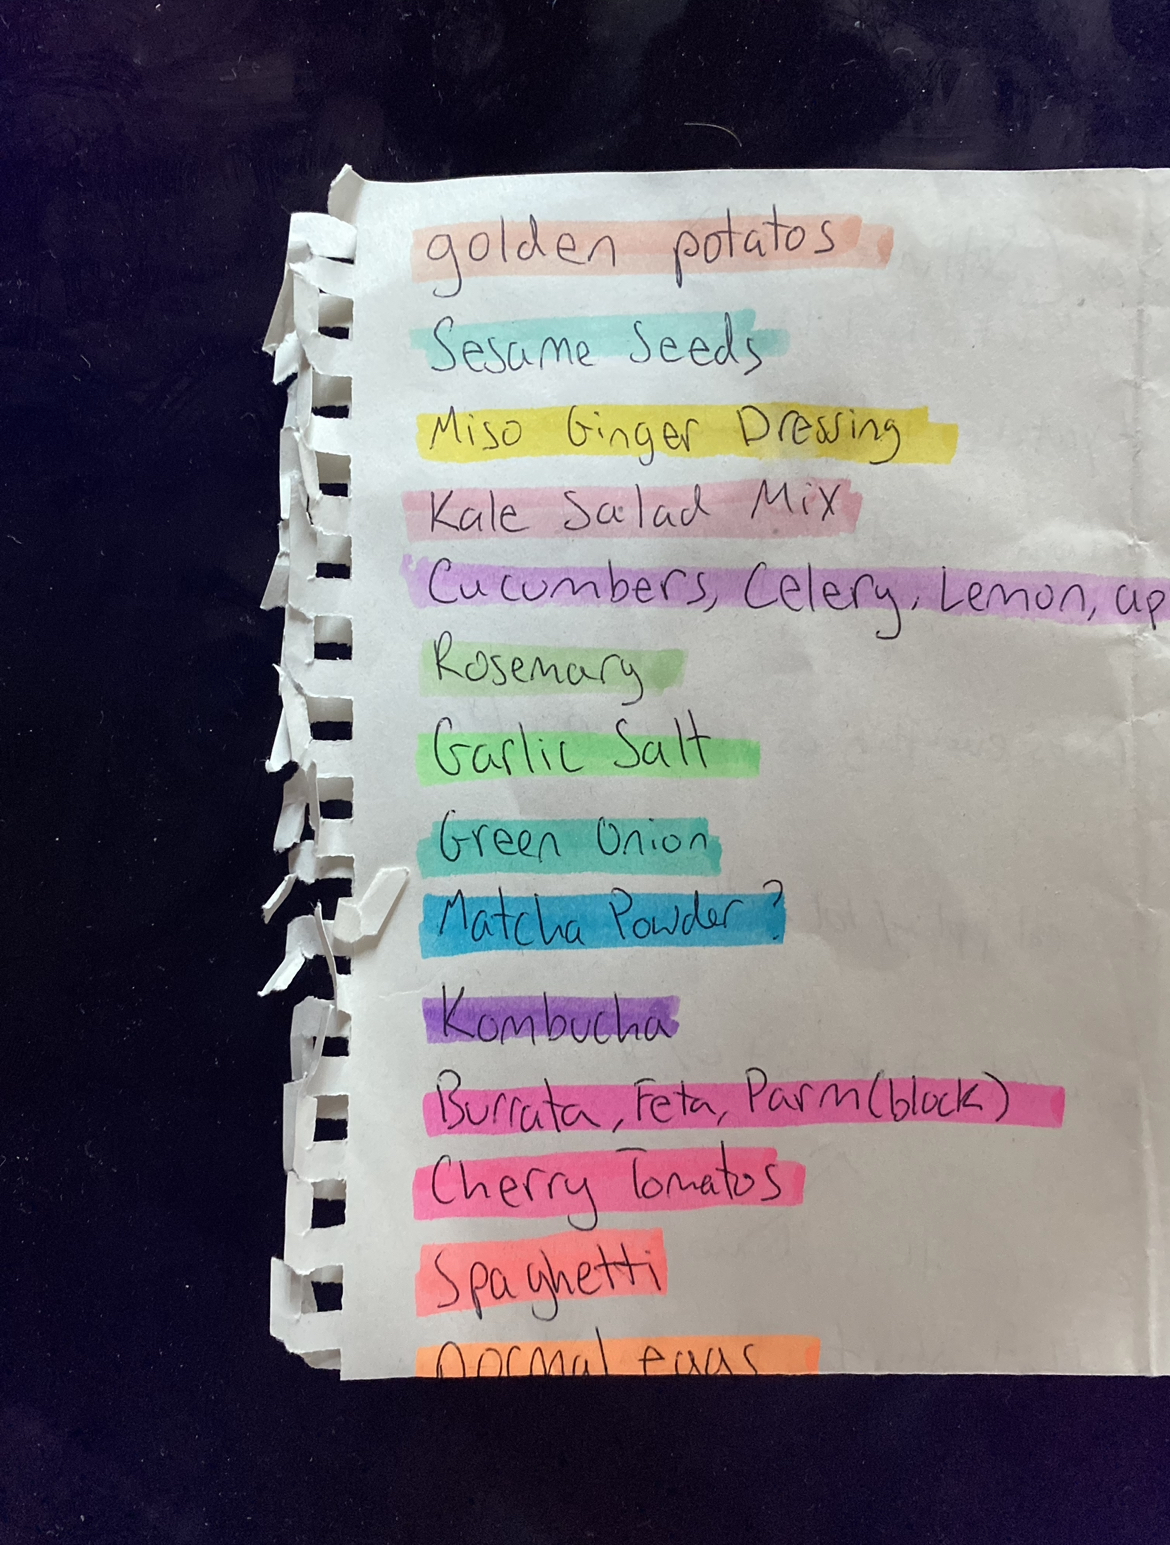 golden potatos
Sesame Seeds
Miso Ginger Dressing
Kale Salad Mix
Cucumbers, Celery, Lemon, ap
Rosemary
Garlic Salt
Green Onion
Matcha Powder?
Kombucha
Burrata, Feta, Parm(block)
Cherry Tomatos
Spaghetti
normal eggs